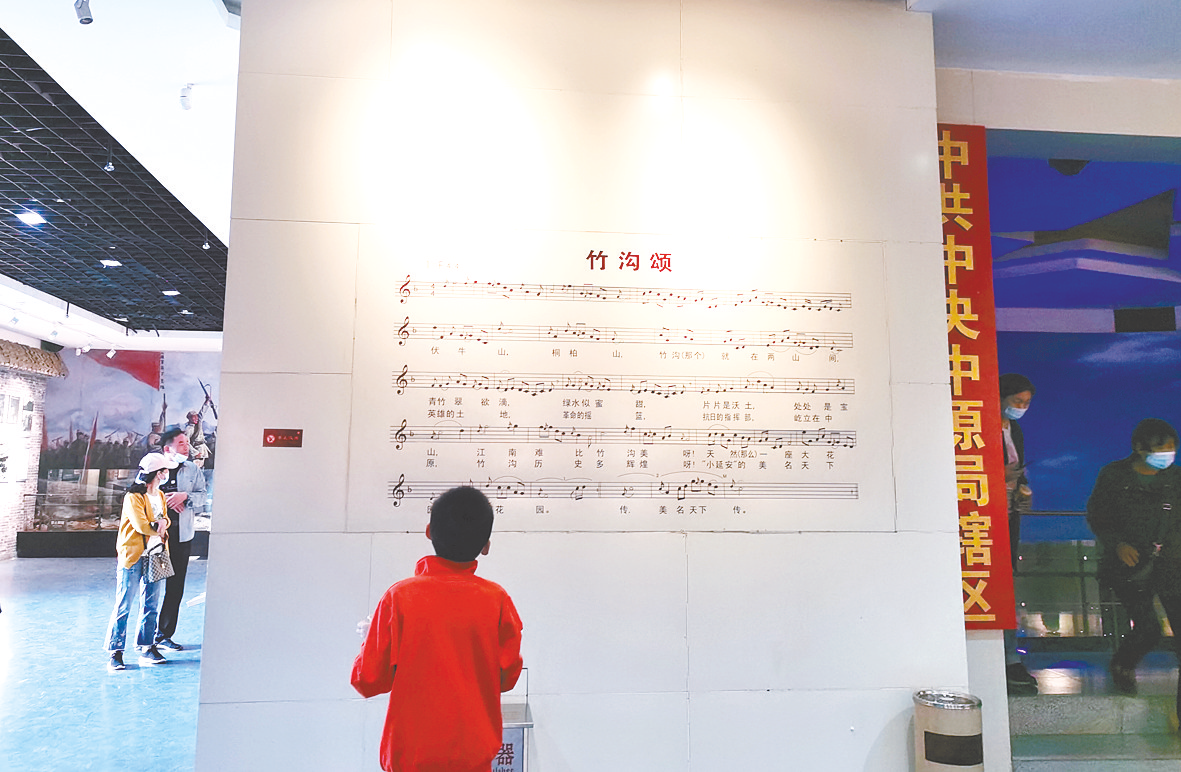 竹沟颂
伏牛山， 桐柏山， 竹沟（那个） 就在两山间，
青竹翠欲滴， 绿水似蜜甜， 片片是沃土， 处处是宝
英雄的土地， 革命的摇蓝， 抗日的指挥部， 屹立在中
山， 江南难比竹沟美呀！天然（那么）一座大花
原， 竹沟历史多辉煌呀！“小延安”的美名天下
花园。 传， 美名天下传。
中共中央中原局辖区
器